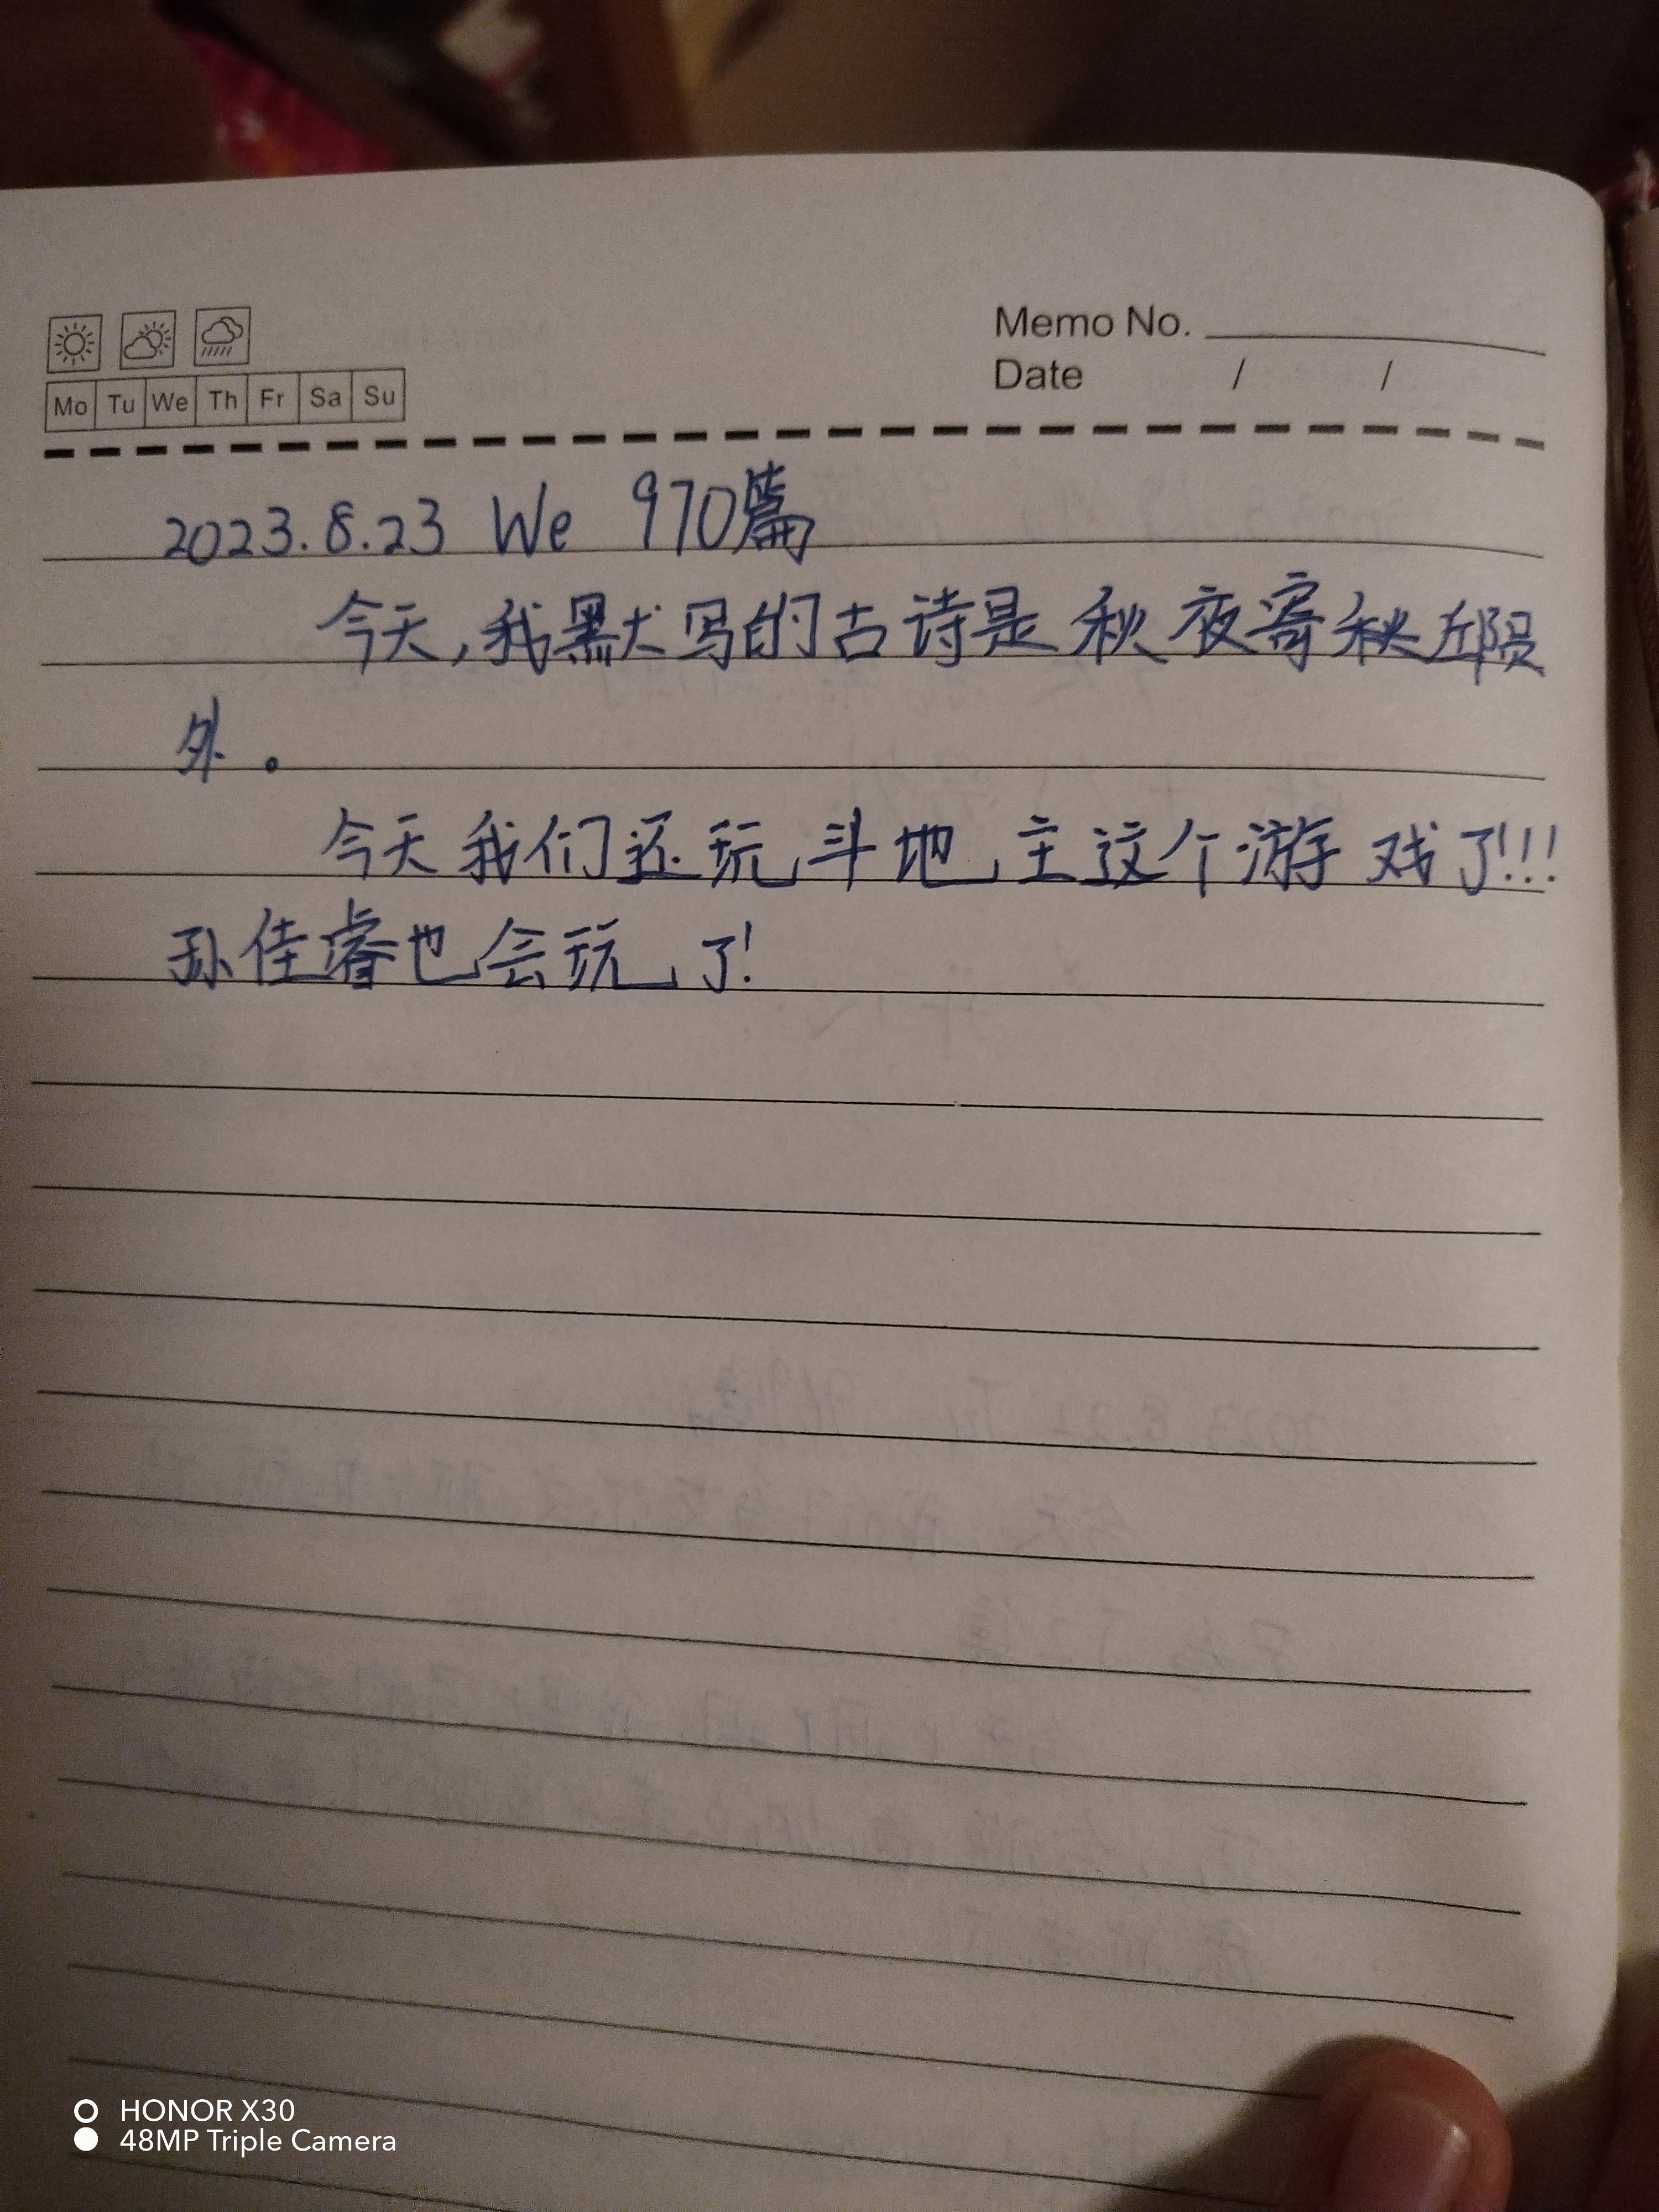 Memo No.
Date / /
Mo Tu We Th Fr Sa Su
2023.8.23 We 970篇
今天,我默写的古诗是秋夜寄秋
外。
今天我们还玩斗地主这个游戏了!!!
孙佳睿也会玩了!
HONOR X30
48MP Triple Camera